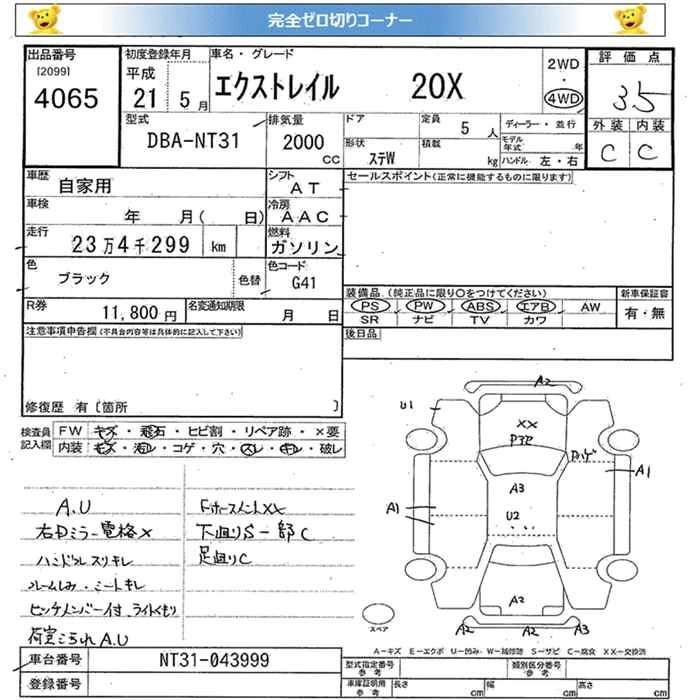 完全ゼロ切りコーナー
出品番号
[2099]
4065
初度登録年月
平成
21 5月
車名・グレード
エクストレイル 20X
2WD
・
4WD
評価点
3.5
外装 内装
C C
型式
DBA-NT31
排気量
2000
CC
ドア
定員
5人
ディーラー・並行
形状
ステW
積載
kg
モデル年式
年
ハンドル 左・右
車歴
自家用
シフト
AT
セールスポイント(正常に機能するものに限ります)
車検
年 月( 日)
冷房
AAC
走行
23万4千299 km
燃料
ガソリン
色
ブラック
色替
色コード
G41
装備品 (純正品に限り○をつけてください)
新車保証書
PS PW ABS エアB AW
有・無
SR ナビ TV カワ
R券
11,800円
名変通知期限
月 日
注意事項申告欄(不具合内容等は具体的に記入して下さい)
後日品
修復歴 有〔箇所 〕
検査員
記入欄
FW キズ・飛石・ヒビ割・リペア跡・×要
内装 キズ・汚レ・コゲ・穴・スレ・キレ・破レ
A.U
右Dミラー電格×
ハンドルスリキレ
シートキレ
ヒッチメンバー付 ライトくもり
A.U
下廻りS一部C
足廻りC
A2
U1
XX
A3
A1
A1
U2
A2
A2
A2
A2
スペア
A-キズ E-エクボ U-凹み W-補修跡 S-サビ C-腐食 XX-交換済
車台番号
NT31-043999
登録番号
型式指定番号
参考
類別区分番号
参考
車庫証明用
参考
長さ cm 幅 cm 高さ cm